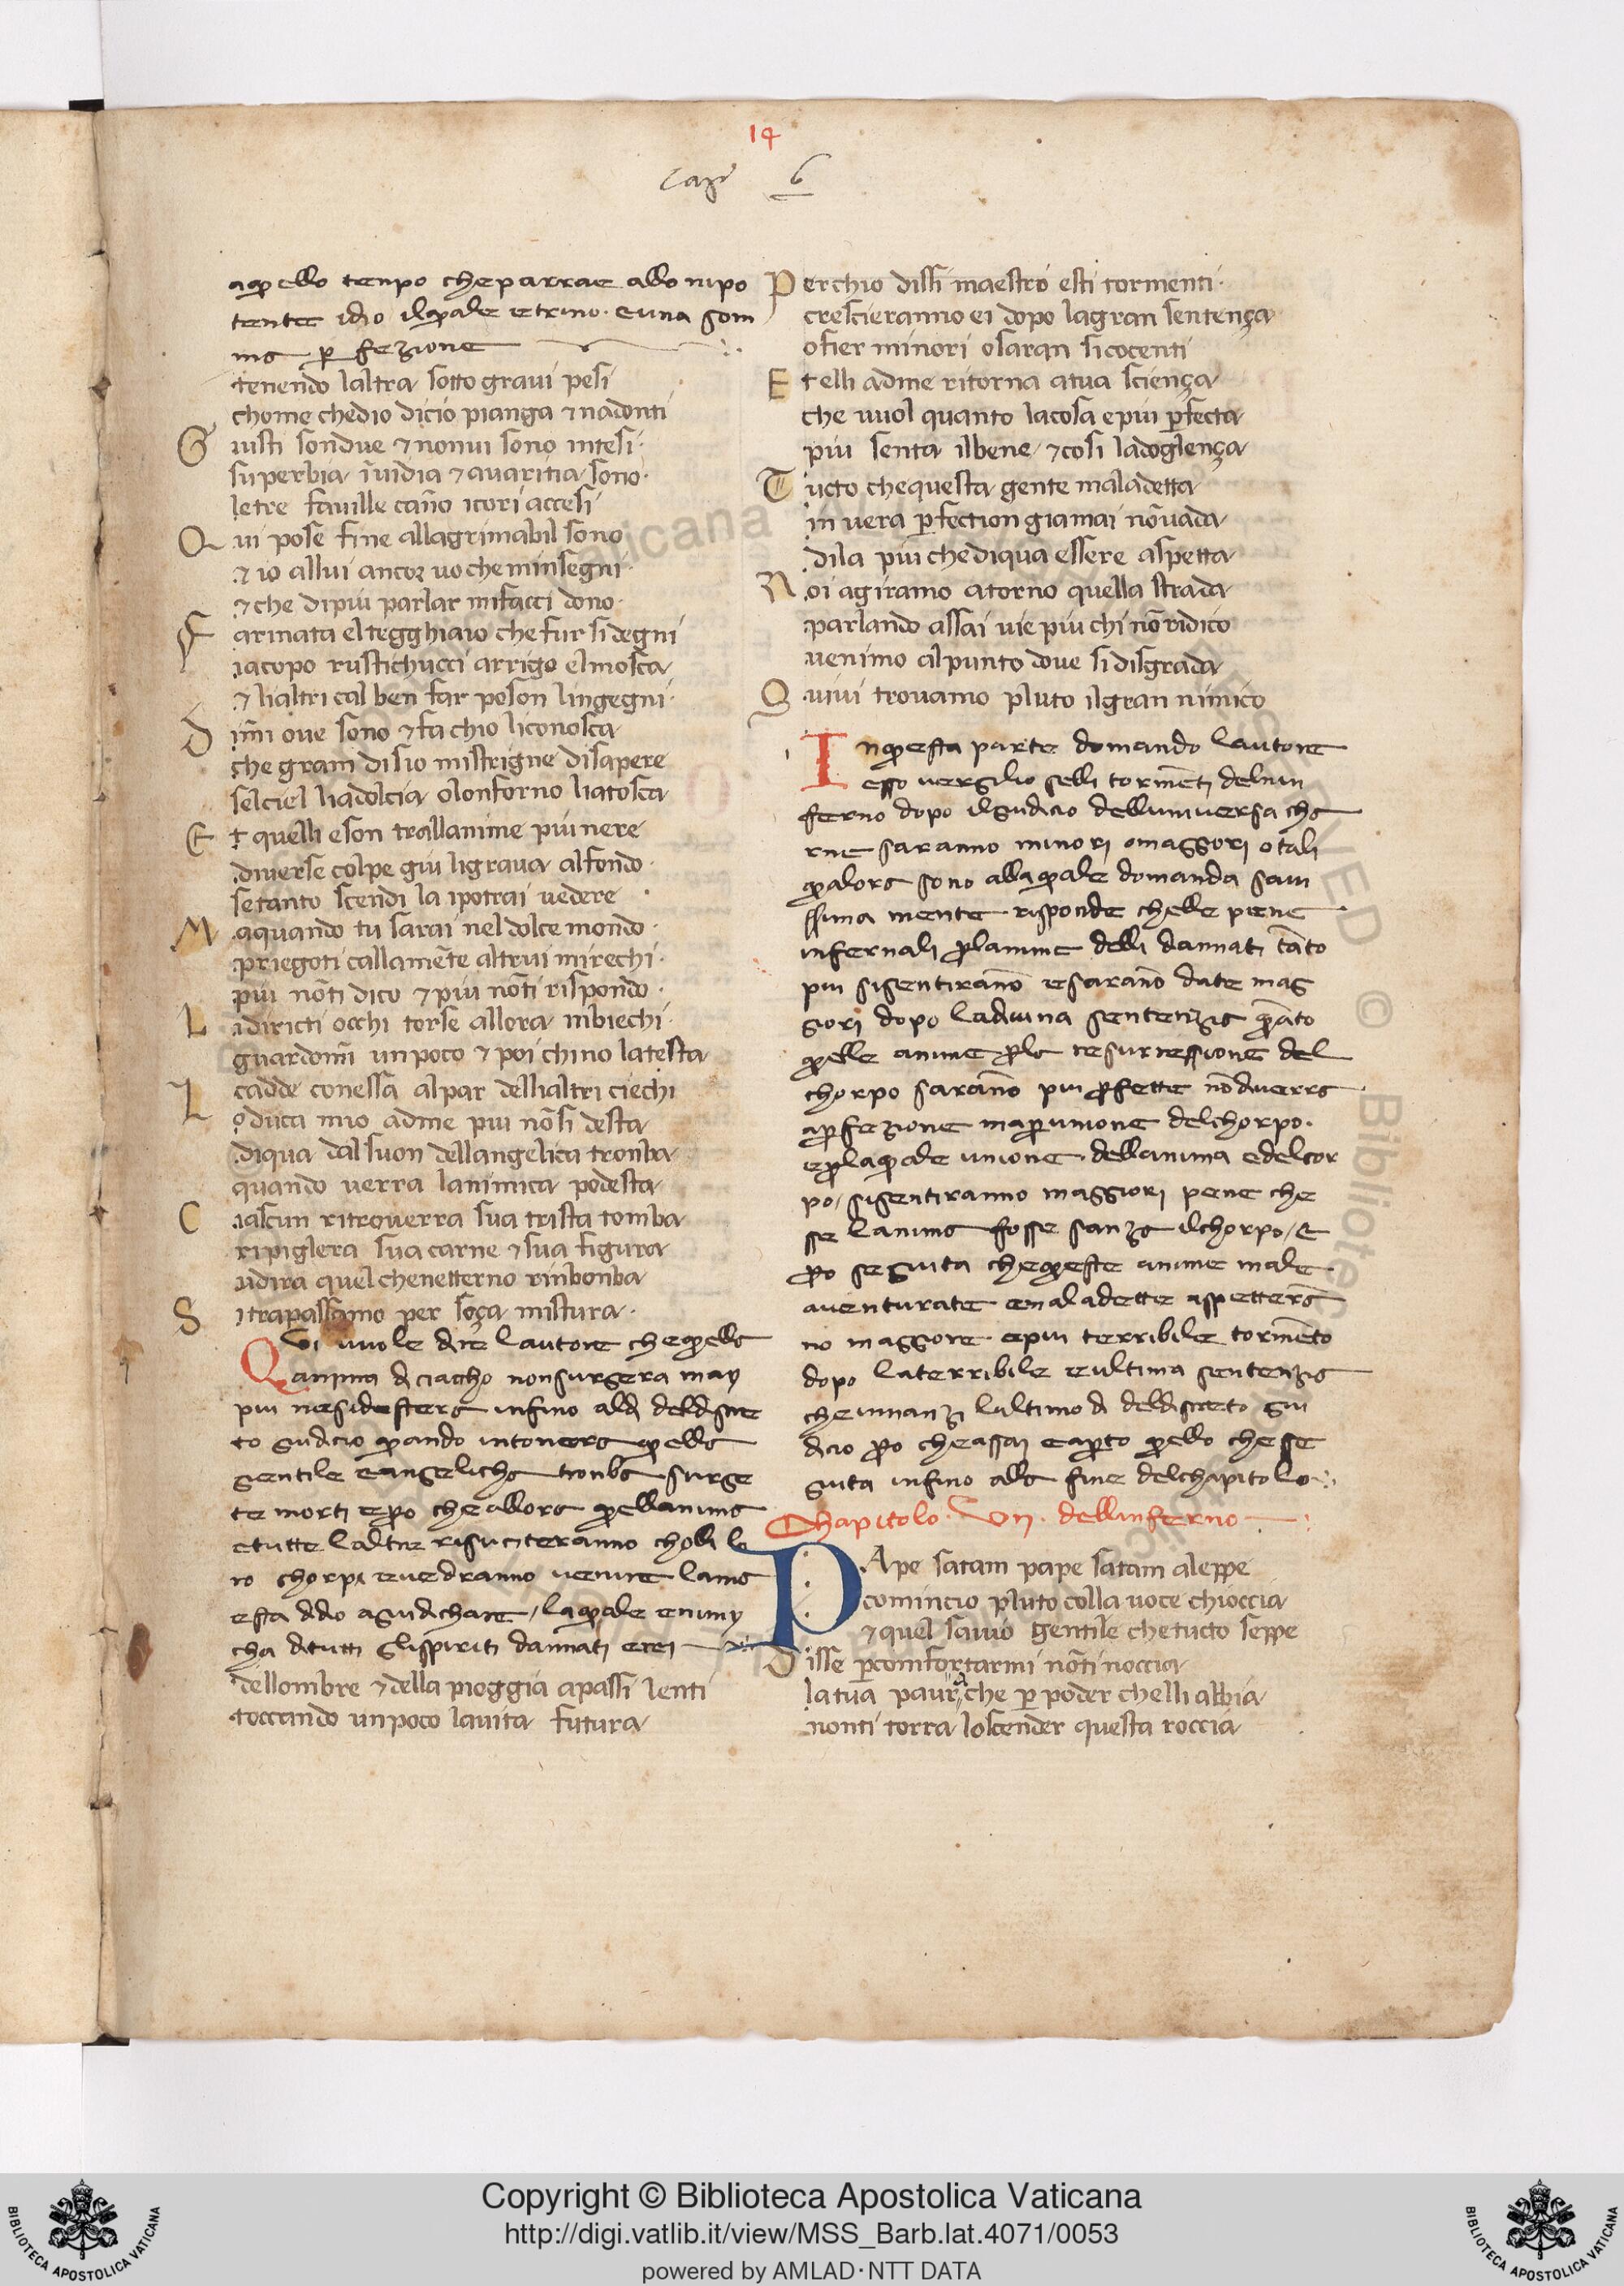 14
Capº 6
aquello tenpo che parrae allo nipo
tente idio il quale e trino e una som
ma perfezione
tenendo laltra sotto gravi pesi
chome chedio dicio pianga ⁊ nadonti
Giusti sondue ⁊ nonui sono intesi
superbia īuidia ⁊ auaritia sono
letre faville cāno icori accesi
Qui pose fine allagrimabil sono
⁊ io allui ancor uo che minsegni
⁊ che dipiu parlar mifacci dono
Farinata el tegghiaio che fur si degni
iacopo rustichucci arrigo el mosca
⁊ lialtri cal ben far poson lingegni
Dim̄i oue sono ⁊ fa chio li conosca
che gram disio mistrigne disapere
selciel liadolcia olonforno liatosca
Et quelli eson trallanime piu nere
diuerse colpe giu ligraua alfondo
setanto scendi la ipotrai uedere
Maquando tu sarai nel dolce mondo
priegoti callamēte altrui mirechi
piu nōti dico ⁊ piu nōti rispondo
Lidiricti occhi torse allora inbiechi
guardom̄i unpoco ⁊ poi chino latesta
cadde conessa alpar dellialtri ciechi
Lo duca mio adme piu nōsi desta
diqua dalsuon dellangelica tronba
quando uerra lanimica podesta
Ciascun ritrouerra sua trista tomba
ripiglera sua carne ⁊ sua figura
udira quel chenetterno rinbonba
Sitrapassamo per soça mistura
Qui uuole dire lautore che quella
anima di ciaccho non surgera may
piu nesidestera infino al di deldiscre
to giudicio quando intonera quella
gentile e angelicha tronba surge
te morti e pero che allora quellanima
e tutte laltre risuciteranno cholli lo
ro chorpi e uedranno uenire lama
esta didio a giudichare / laquale e nimi
cha ditutti glispiriti dannati
dellombre ⁊ della pioggia apassi lenti
toccando unpoco lauita futura
Perchio dissi maestro esti tormenti
crescieranno ei dopo lagran sentença
ofier minori osaran sicocenti
Et elli adme ritorna atua sciença
che uuol quanto lacosa epiu p̄fecta
piu senta ilbene ⁊ cosi ladoglença
Tucto chequesta gente maladetta
in uera p̄fection giamai nōuada
dila piu chediqua essere aspetta
Noi agiramo atorno quella strada
parlando assai uie piu chi nō ridico
uenimo alpunto doue sidisgrada
Quiui trouamo pluto ilgran nimico
In questa parte domando lautore
esso uergilio selli tormēti delnin
ferno dopo ilgiudicio delluniuersa cha
rne saranno minori o maggiori o tali
qualora sono alla quale domanda saui
ssima mente risponde chelle piene
infernali perlanime delli dannati tāto
piu sisentirāno e sarāno date mag
giori dopo ladiuina sentenzia quāto
quelle anime perla resurressione del
chorpo sarāno piu perfette nō di uerra
a perfezione ma per unione del chorpo.
e per laquale unione dellanima e delcor
po / sisentiranno maggiori pene che
sse lanima fosse sanza ilchorpo / E
pero seguita che queste anime male
auenturate e maladette aspetterā
no maggiore e piu terribile tormēto
dopo la terribile e ultima sentenzia
che innanzi lultimo di deldiscreto giu
dicio pero che assai e aperto quello che se
guita infino alla fine delchapitolo
Chapitolo. Vii. dellinferno
PApe satam pape satam aleppe
comincio pluto colla uoce chioccia
⁊ quel sauio gentile che tucto seppe
Disse p̄comfortarmi nōti noccia
la tua paura che p̄ poder chelli abbia
nonti torra loscender questa roccia
Copyright © Biblioteca Apostolica Vaticana
http://digi.vatlib.it/view/MSS_Barb.lat.4071/0053
powered by AMLAD·NTT DATA
BIBLIOTECA APOSTOLICA VATICANA
BIBLIOTECA APOSTOLICA VATICANA